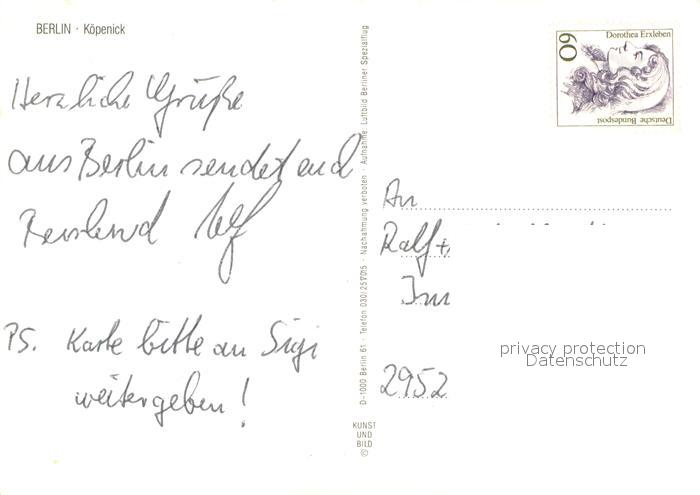 BERLIN · Köpenick
Herzliche Grüße
aus Berlin sendet euch
PS. Karte bitte an Sigi
weitergeben!
D-1000 Berlin 61 · Telefon 030/2517015 · Nachahmung verboten · Aufnahme: Luftbild Berliner Spezialflug
KUNST
UND
BILD
©
Dorothea Erxleben
60
Deutsche Bundespost
An
Ralf +
Im
2952
privacy protection
Datenschutz